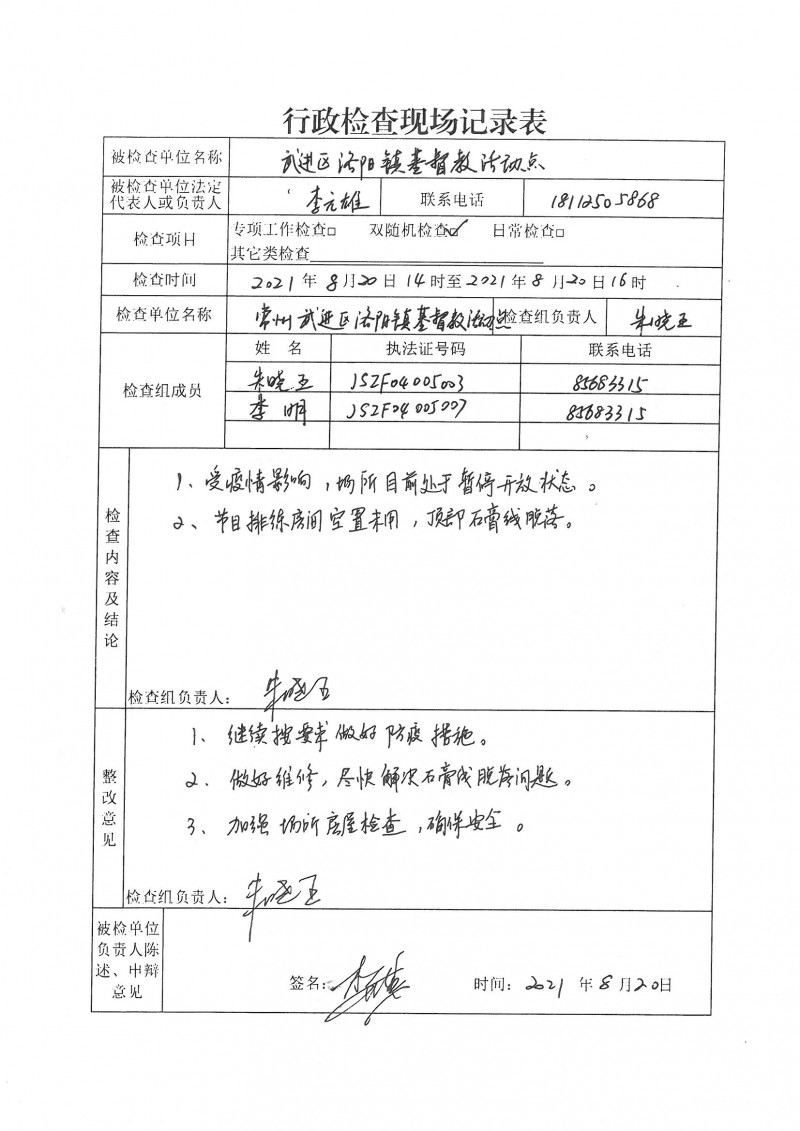 行政检查现场记录表
被检查单位名称 武进区洛阳镇基督教活动点
被检查单位法定代表人或负责人 李元雄 联系电话 18112505868
检查项目 专项工作检查□ 双随机检查☑ 日常检查□
其它类检查
检查时间 2021年8月20日14时至2021年8月20日16时
检查单位名称 常州武进区洛阳镇基督教活动点 检查组负责人 朱晓五
检查组成员 姓 名 执法证号码 联系电话
朱晓五 JSZF04005003 85683315
李明 JSZF04005007 85683315
检查内容及结论
1、受疫情影响,场所目前处于暂停开放状态。
2、节目排练房间空置未用,顶部石膏线脱落。
检查组负责人: 朱晓五
整改意见
1、继续按要求做好防疫措施。
2、做好维修,尽快解决石膏线脱落问题。
3、加强场所房屋检查,确保安全。
检查组负责人: 朱晓五
被检单位负责人陈述、申辩意见
签名: 李元雄 时间: 2021年8月20日